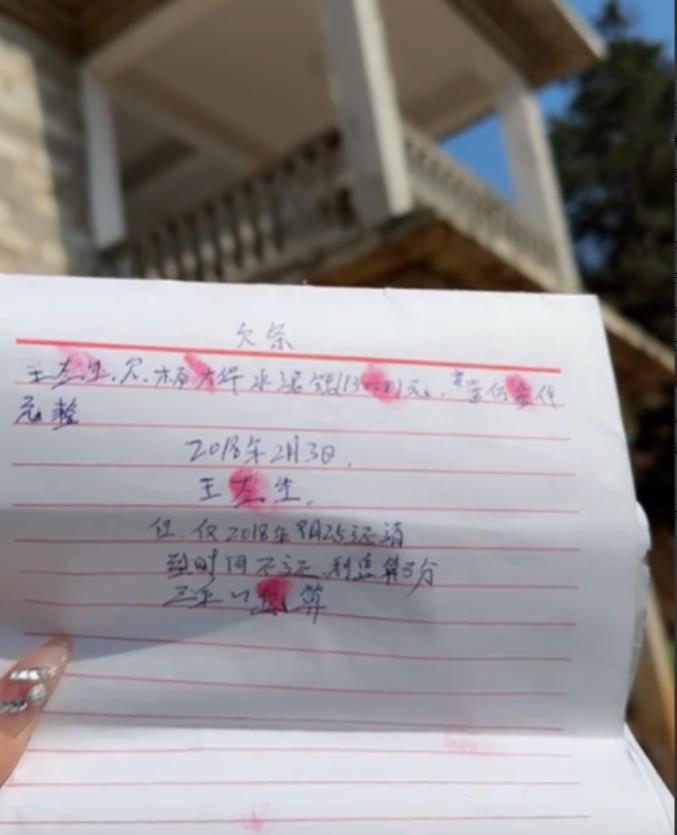 欠条
王左生.欠.杨大华水泥钱(13000)元.
元整
2018年2月3日.
王左生.
仅2018年8月25还清
到时间不还.利息算3分
三年一起算